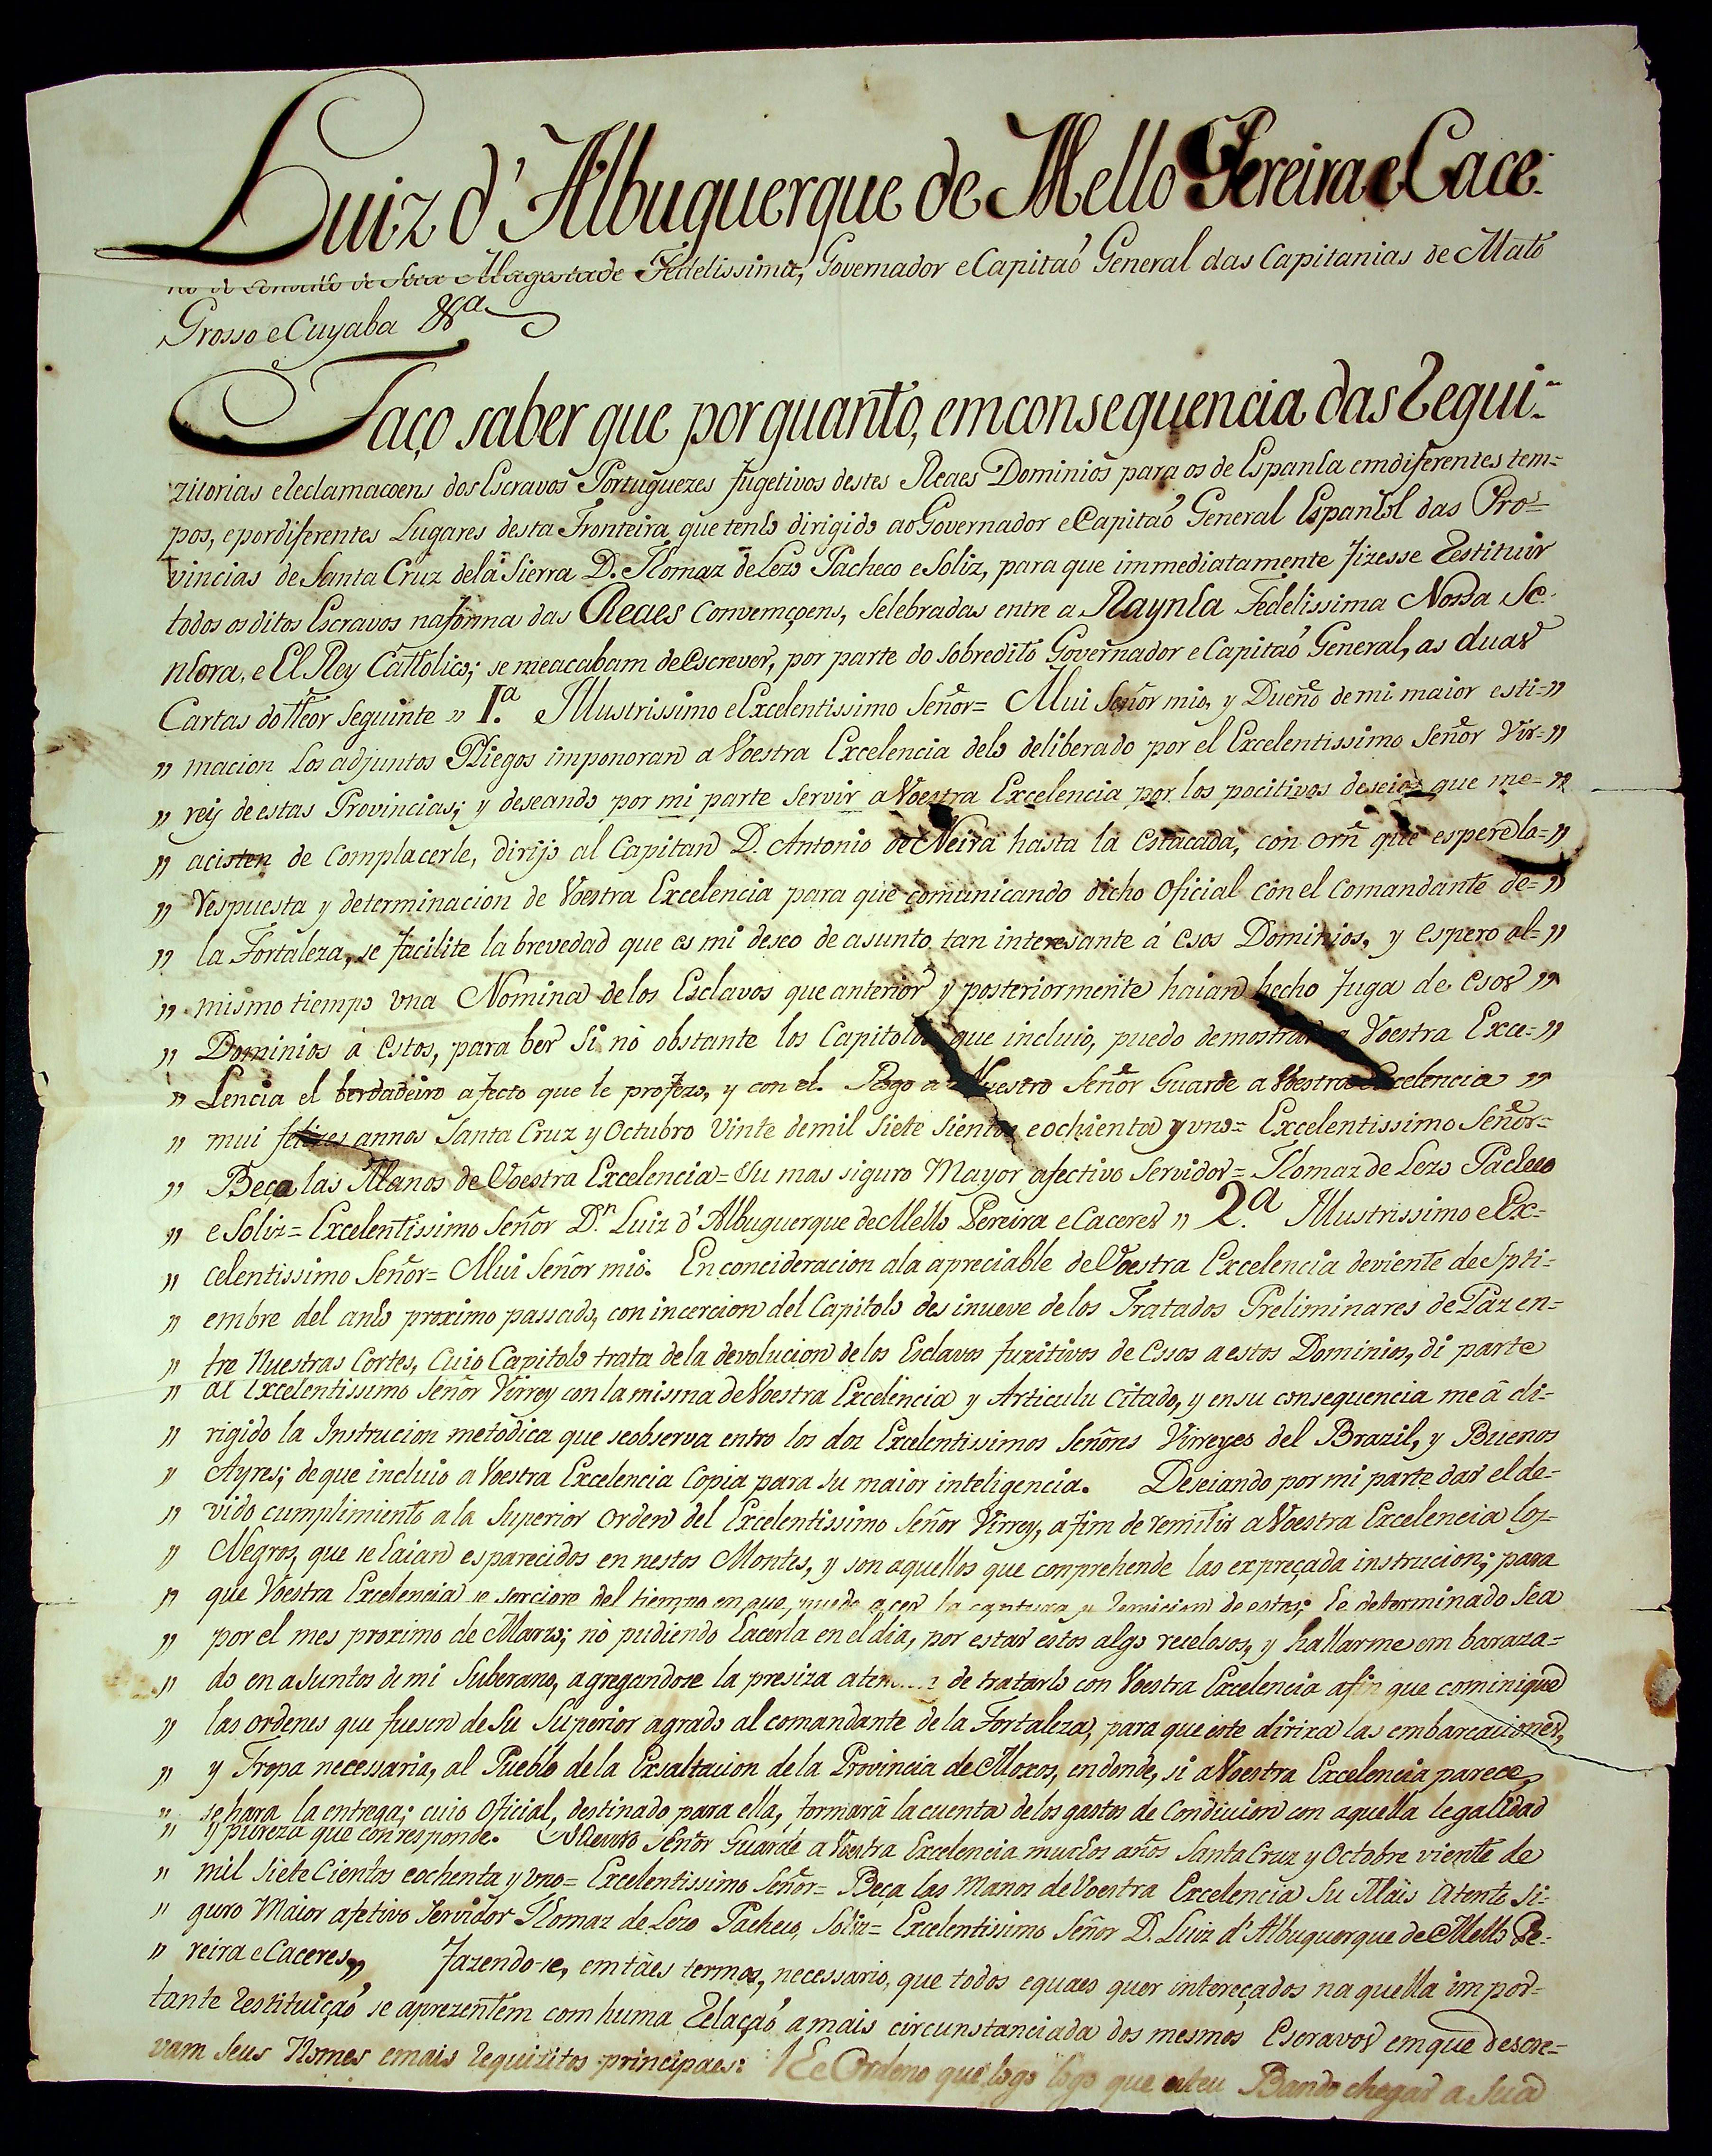 Luiz d'Albuquerque de Mello Pereira e Cace-
Magestade Fedelissima, Governador e Capitaõ General das Capitanias de Mato
Grosso e Cuyaba &ª
Faço saber que por quanto, em consequencia das Requi-
zitorias e Reclamaçoens dos Escravos Portuguezes fugetivos destes Reaes Dominios para os de Espanha em diferentes tem=
pos, e por diferentes Lugares desta Fronteira, que tenho dirigido ao Governador e Capitaõ General Espanhol das Pro=
vincias de Santa Cruz de la Sierra D. Thomaz de Lezo Pacheco e Soliz, para que immediatamente fizesse Restituir
todos os ditos Escravos na forma das Reaes Convemçoens, Selebradas entre a Raynha Fedelissima Nossa Se-
nhora, e El Rey Catholico; se me acabam de Escrever, por parte do Sobredito Governador e Capitaõ General, as duas
Cartas do theor Seguinte „ 1.ª Illustrissimo e Excelentissimo Señor= Mui Señor mio, y Dueño de mi maior esti=„
„ macion Los adjuntos Pliegos imponoran a Voestra Excelencia delo deliberado por el Excelentissimo Señor Vir=„
„ rey de estas Provincias; y deseando por mi parte Servir a Voestra Excelencia por los pocitivos deseios que me=„
„ acisten de Complacerle, dirijo al Capitan D. Antonio de Neira hasta la Estacada, con orñ que espere la=„
„ Respuesta y determinacion de Voestra Excelencia para que comunicando dicho Oficial con el Comandante de=„
„ la Fortaleza, se facilite la brevedad que es mi deseo de asunto tan interesante á Esos Dominios, y Espero al=„
„ mismo tiempo vna Nomina de los Esclavos que anterior y posteriormente haian hecho fuga de Esos „
„ Dominios á Estos, para ber Si nó obstante los Capitolos que incluio, puedo demostrar a Voestra Exce=„
„ Lencia el berdadeiro afecto que le profezo, y con el. Rogo a Nuestro Señor Guarde a Voestra Excelencia „
„ mui felizes annos Santa Cruz y Octubro Vinte de mil Siete Sientos e ochienta y vno= Excelentissimo Señor=
„ Beça las Manos de Voestra Excelencia= Su mas siguro Mayor afectivo Servidor= Thomaz de Lezo Pacheco
„ e Soliz= Excelentissimo Señor D.n Luiz d'Albuquerque de Mello Pereira e Caceres „ 2.ª Illustrissimo e Ex=
„ celentissimo Señor= Mui Señor mio. En concideracion ala apreciable de Voestra Excelencia de viente de Spti=
„ embre del anho proximo passado, con incercion del Capitolo des inueve de los Tratados Preliminares de Paz en=
„ tre Nuestras Cortes, Cuio Capitolo trata de la devolucion de los Esclavos fuxitivos de Essos a estos Dominios, di parte
„ al Excelentissimo Señor Virrey con la misma de Voestra Excelencia y Articulu Citado, y en su consequencia me á di=
„ rigido la Instrucion metodica que seobserva entro los dos Excelentissimos Señores Virreyes del Brazil, y Buenos
„ Ayres; de que incluio a Voestra Excelencia Copia para Su maior inteligencia. Deseiando por mi parte dar el de=
„ vido cumplimiento a la Superior Orden del Excelentissimo Señor Virrey, a fim de remitir a Voestra Excelencia los=
„ Negros, que se haian esparecidos en nestos Montes, y son aquellos que comprehende las expreçada instrucion; para
„ que Voestra Excelencia se serciore del tiempo en que, puede acer la captura y Remicion de estos; he determinado Sea
„ por el mes proximo de Marzo; nó pudiendo hacerla en el dia, por estar estos algo recelosos, y hallarme em baraza=
„ do en asuntos de mi Suberano, agregandose la presiza de tratarlo con Voestra Excelencia afin que cominique
„ las ordenes que fuesen de Su Superior agrado al comandante de la Fortaleza, para que este dirixa las embarcaciones,
„ y Tropa necessaria, al Pueblo de la Exsaltacion de la Provincia de Moxos, en donde, si a Voestra Excelencia parece,
„ se hara la entrega; cuio Oficial, destinado para ella, formará la cuenta de los gastos de Condicion con aquella legalidad
„ y pureza que conresponde. Nuestro Señor Guarde a Voestra Excelencia muchos años Santa Cruz y Octobre viente de
„ mil Siete Cientos e ochenta y vno= Excelentissimo Señor= Beça las Manos de Voestra Excelencia Su Mais Atento Si-
„ guro Maior afetivo Servidor Thomaz de Lezo Pacheco, Soliz= Excelentissimo Señor D. Luiz d'Albuquerque de Mello Pe-
„ reira e Caceres„ Fazendo-se, em táes termos, necessario, que todos e quaes quer intereçados na quella impor-
tante Restituiçaõ se aprezentem com huma Relaçaõ a mais circunstanciada dos mesmos Escravos em que descre=
vam Seus Nomes e mais Requizitos principaes: Ordeno que logo logo que esteu Bando chegar a Sua